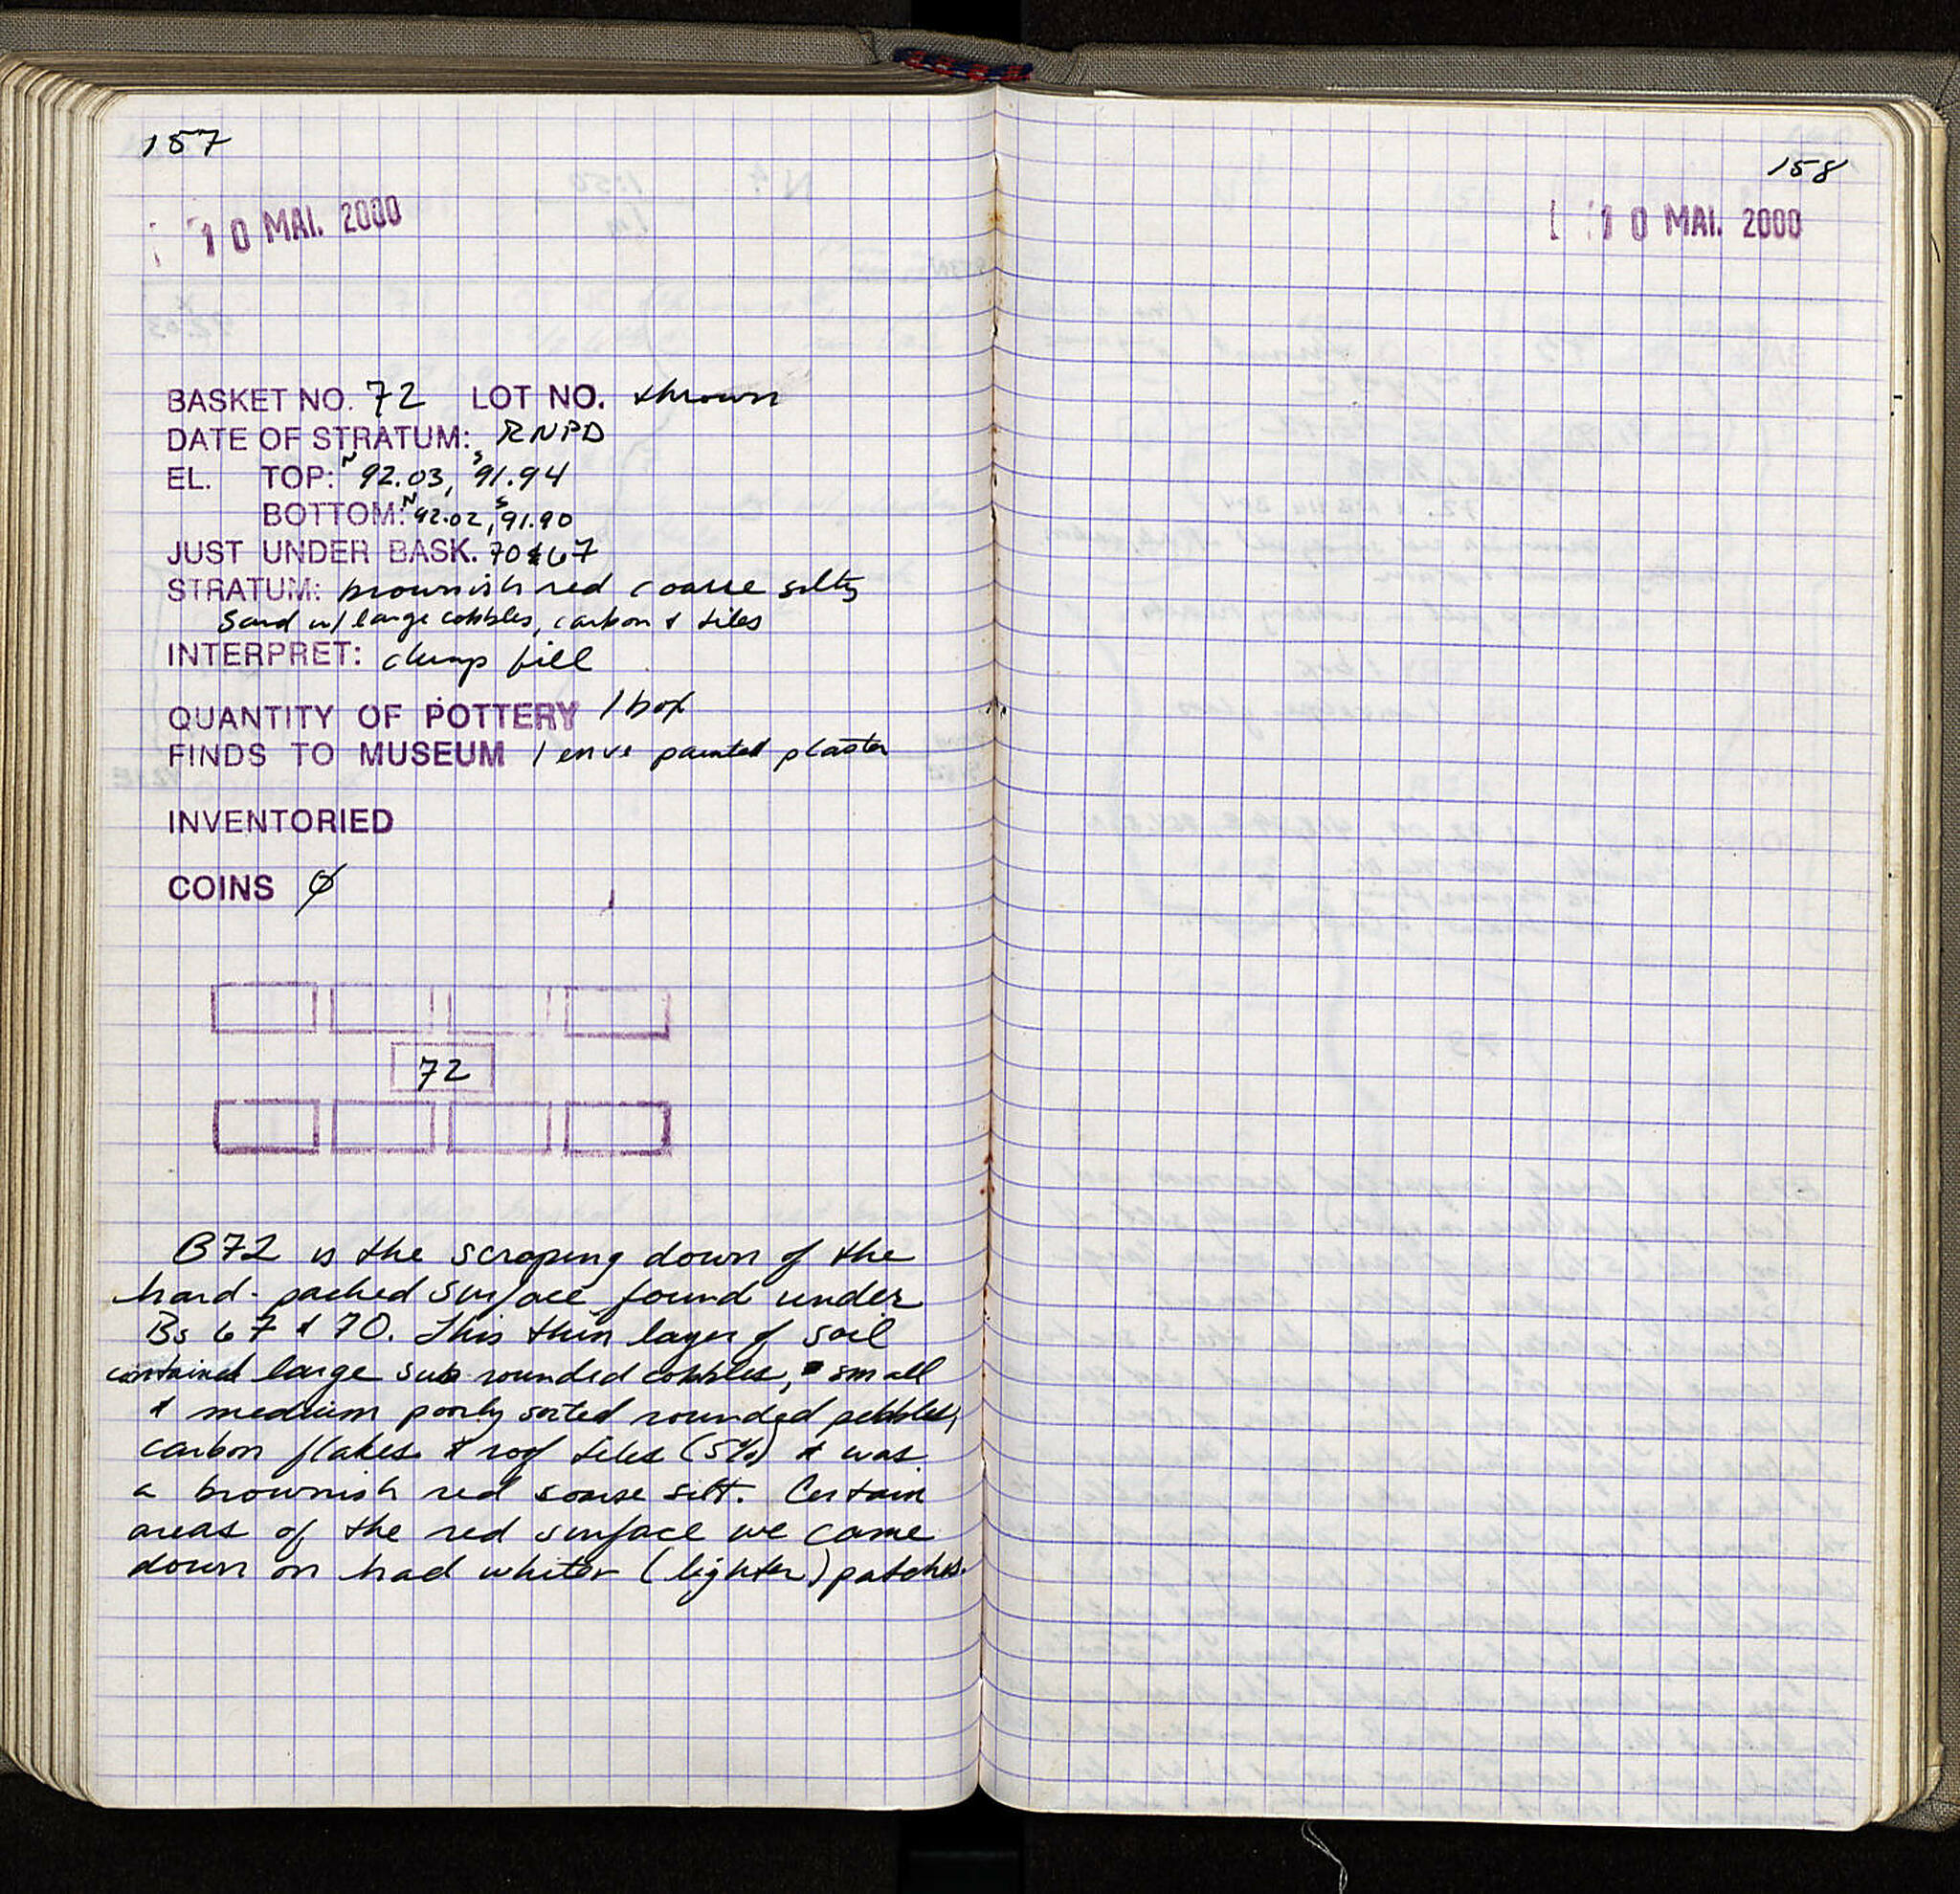 157
10 MAI. 2000
BASKET NO. 72 LOT NO. thrown
DATE OF STRATUM: RNPD
EL. TOP: N 92.03, S 91.94
BOTTOM: N 92.02, S 91.90
JUST UNDER BASK. 70 & 67
STRATUM: brownish red coarse silty
sand w/ large cobbles, carbon & tiles
INTERPRET: dump fill
QUANTITY OF POTTERY 1 box
FINDS TO MUSEUM 1 enve painted plaster
INVENTORIED
COINS Ø
72
B72 is the scraping down of the
hard-packed surface found under
Bs 67 & 70. This thin layer of soil
contained large sub rounded cobbles, small
& medium poorly sorted rounded pebbles,
carbon flakes & roof tiles (5%) & was
a brownish red coarse silt. Certain
areas of the red surface we came
down on had whiter (lighter) patches.
158
10 MAI. 2000